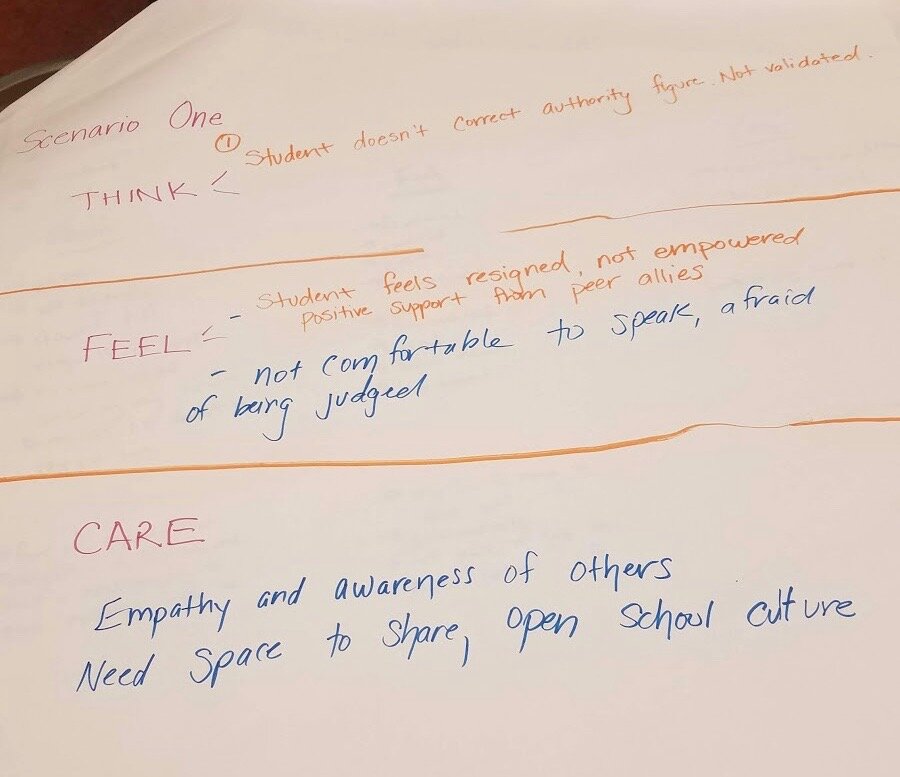 Scenario One
① Student doesn't correct authority figure. Not validated.
THINK <
FEEL < - Student feels resigned, not empowered
positive support from peer allies
- not comfortable to speak, afraid
of being judged
CARE
Empathy and awareness of others
Need space to share, open school culture